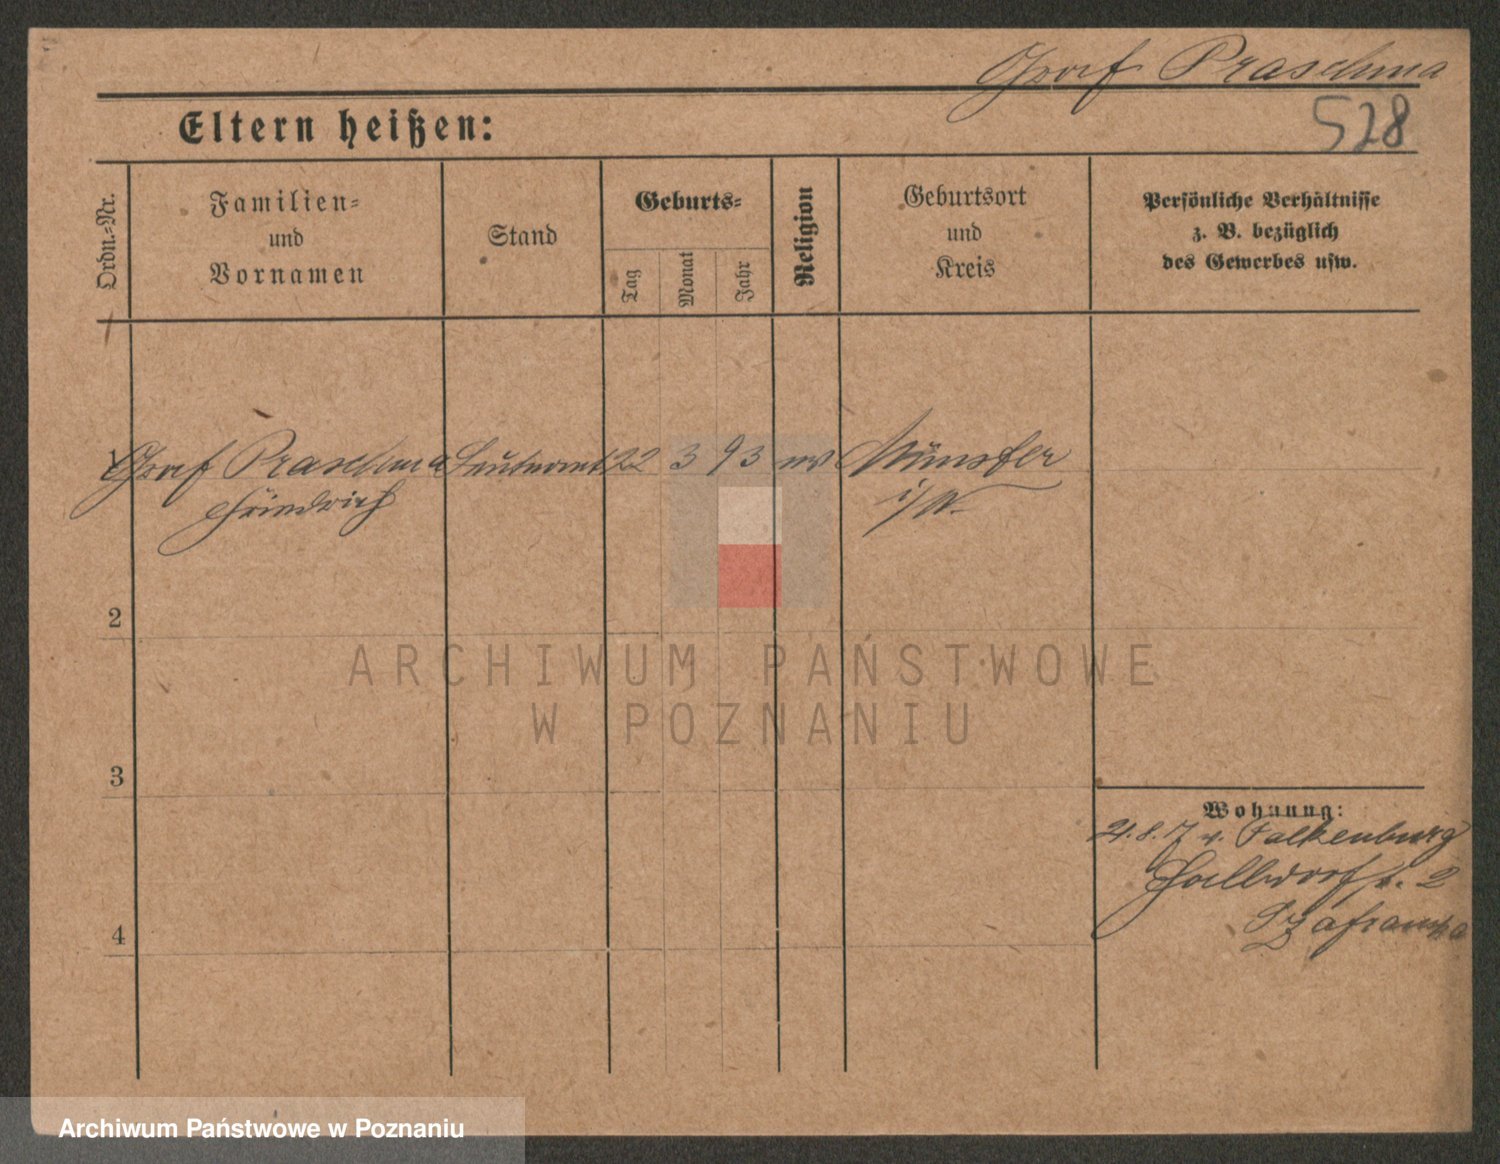 Graf Praschma
528
Eltern heißen:
Ordn.-Nr.
Familien-
und
Vornamen
Stand
Geburts-
Tag
Monat
Jahr
Religion
Geburtsort
und
Kreis
Persönliche Verhältnisse
z. B. bezüglich
des Gewerbes usw.
1 Graf Praschma Leutnant 22 3 93 Münster
Friedrich i/W.
2
3
4
Wohnung:
v. Falkenburg
2
ARCHIWUM PAŃSTWOWE
W POZNANIU
Archiwum Państwowe w Poznaniu